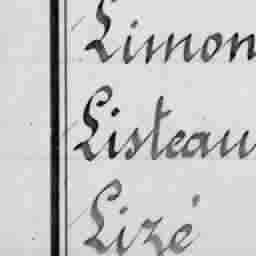 Limon
Listeau
Lizé